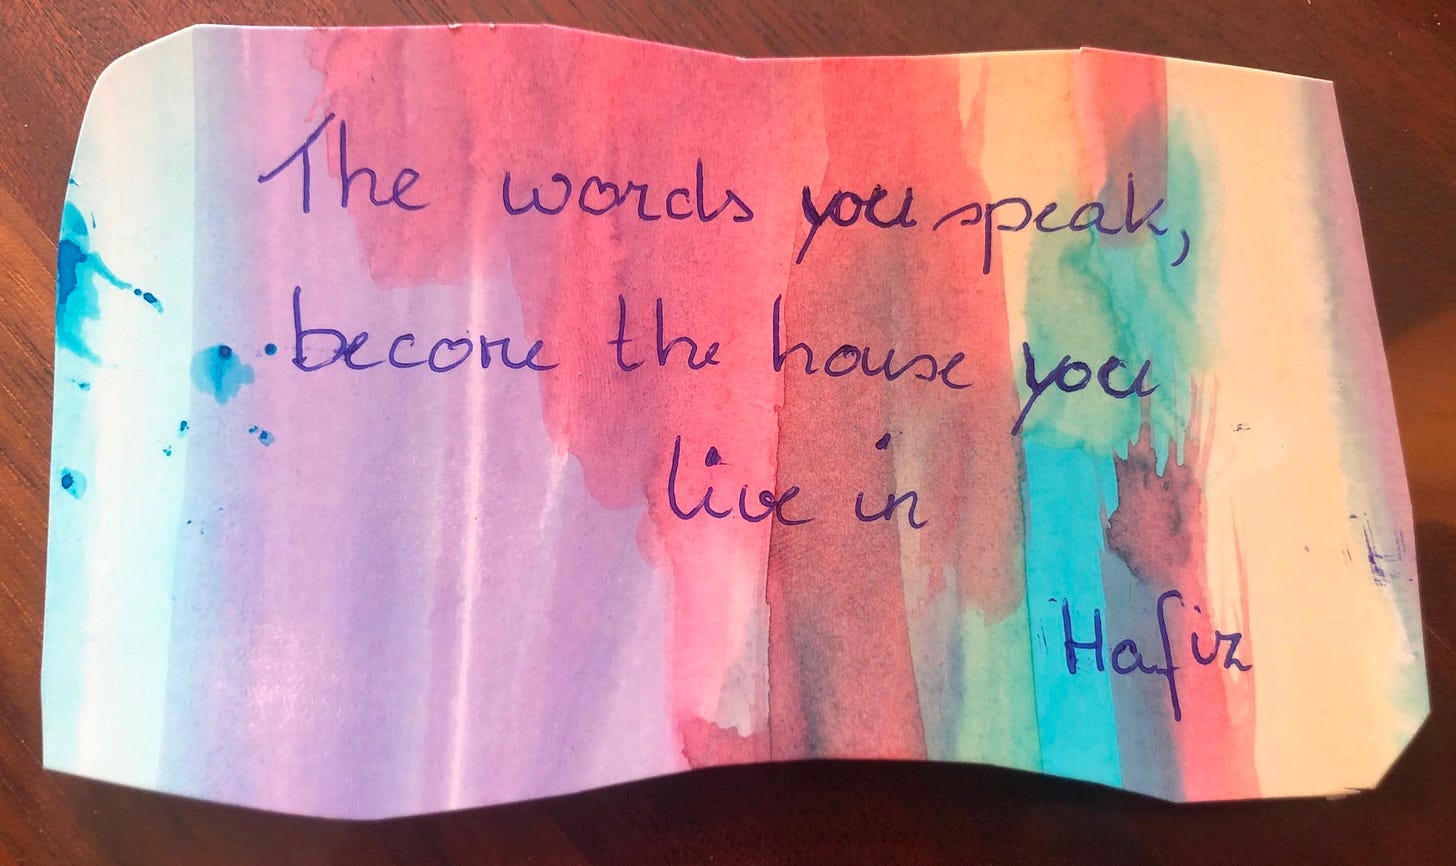 The words you speak,
become the house you
live in
Hafiz